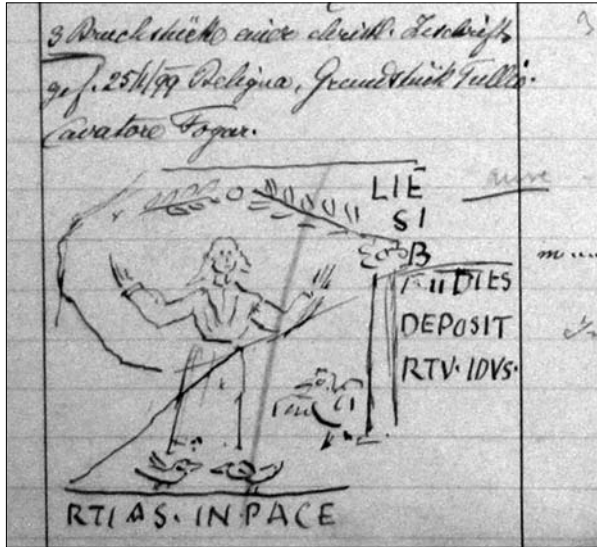 3 Bruchstücke einer christl. Inschrift
gef. 25/4/99 Beligna, Grundstück Tullio.
Cavatore Fogar.
LIE
SI
B
DIES
DEPOSIT
RTV·IDVS·
RTIAS·IN PACE